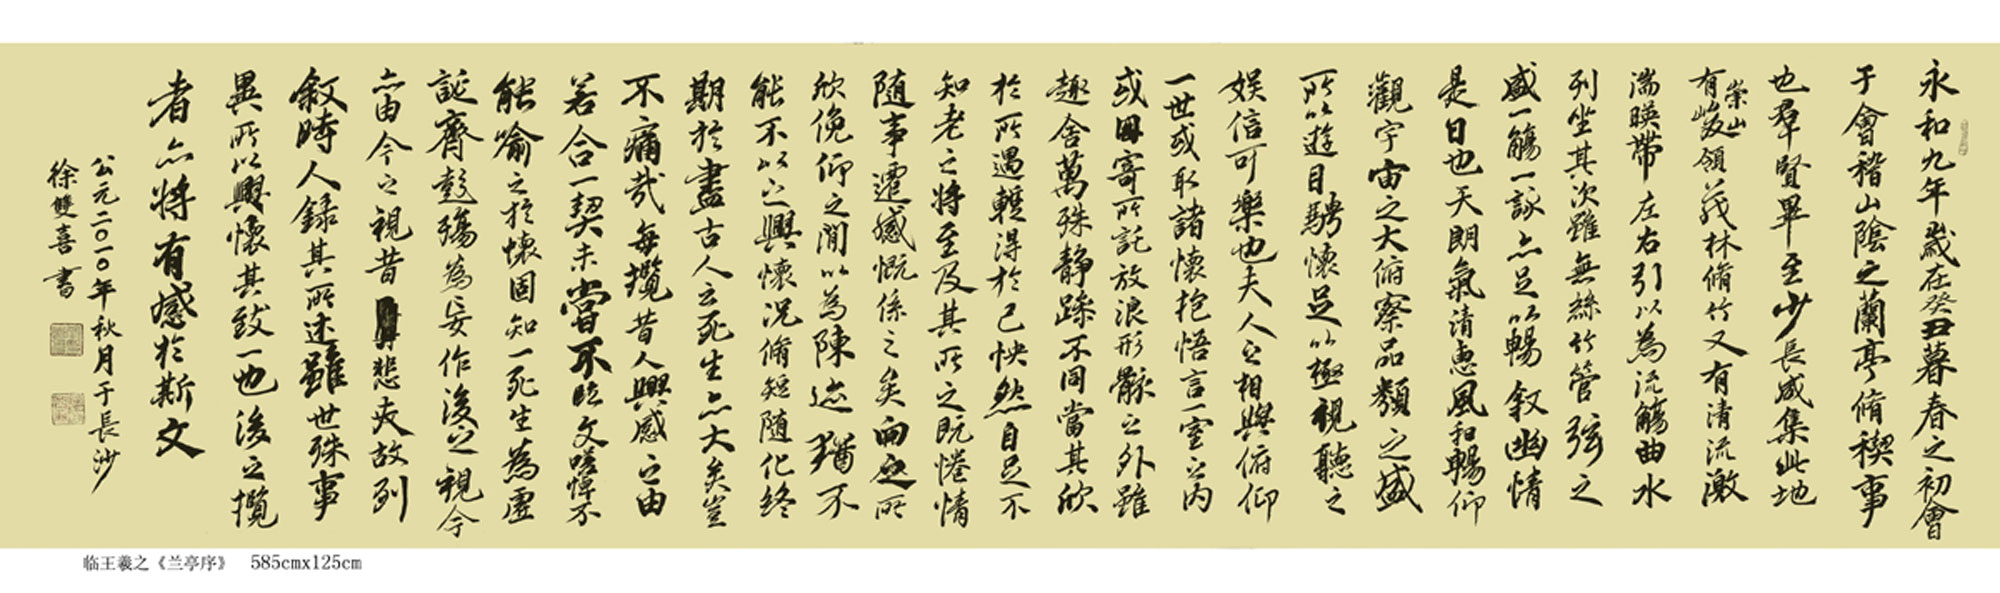 永和九年歲在癸丑暮春之初會
于會稽山陰之蘭亭脩稧事
也羣賢畢至少長咸集此地
有崇山峻領茂林脩竹又有清流激
湍暎帶左右引以為流觴曲水
列坐其次雖無絲竹管弦之
盛一觴一詠亦足以暢敘幽情
是日也天朗氣清惠風和暢仰
觀宇宙之大俯察品類之盛
所以遊目騁懷足以極視聽之
娛信可樂也夫人之相與俯仰
一世或取諸懷抱悟言一室之內
或因寄所託放浪形骸之外雖
趣舍萬殊靜躁不同當其欣
於所遇輒得於己怏然自足不
知老之將至及其所之既惓情
隨事遷感慨係之矣向之所
欣俛仰之閒以為陳迹猶不
能不以之興懷況脩短隨化終
期於盡古人云死生亦大矣豈
不痛哉每攬昔人興感之由
若合一契未嘗不臨文嗟悼不
能喻之於懷固知一死生為虛
誕齊彭殤為妄作後之視今
亦由今之視昔悲夫故列
敘時人錄其所述雖世殊事
異所以興懷其致一也後之攬
者亦將有感於斯文
公元二〇一〇年秋月于長沙
徐雙喜書
临王羲之《兰亭序》 585cmx125cm